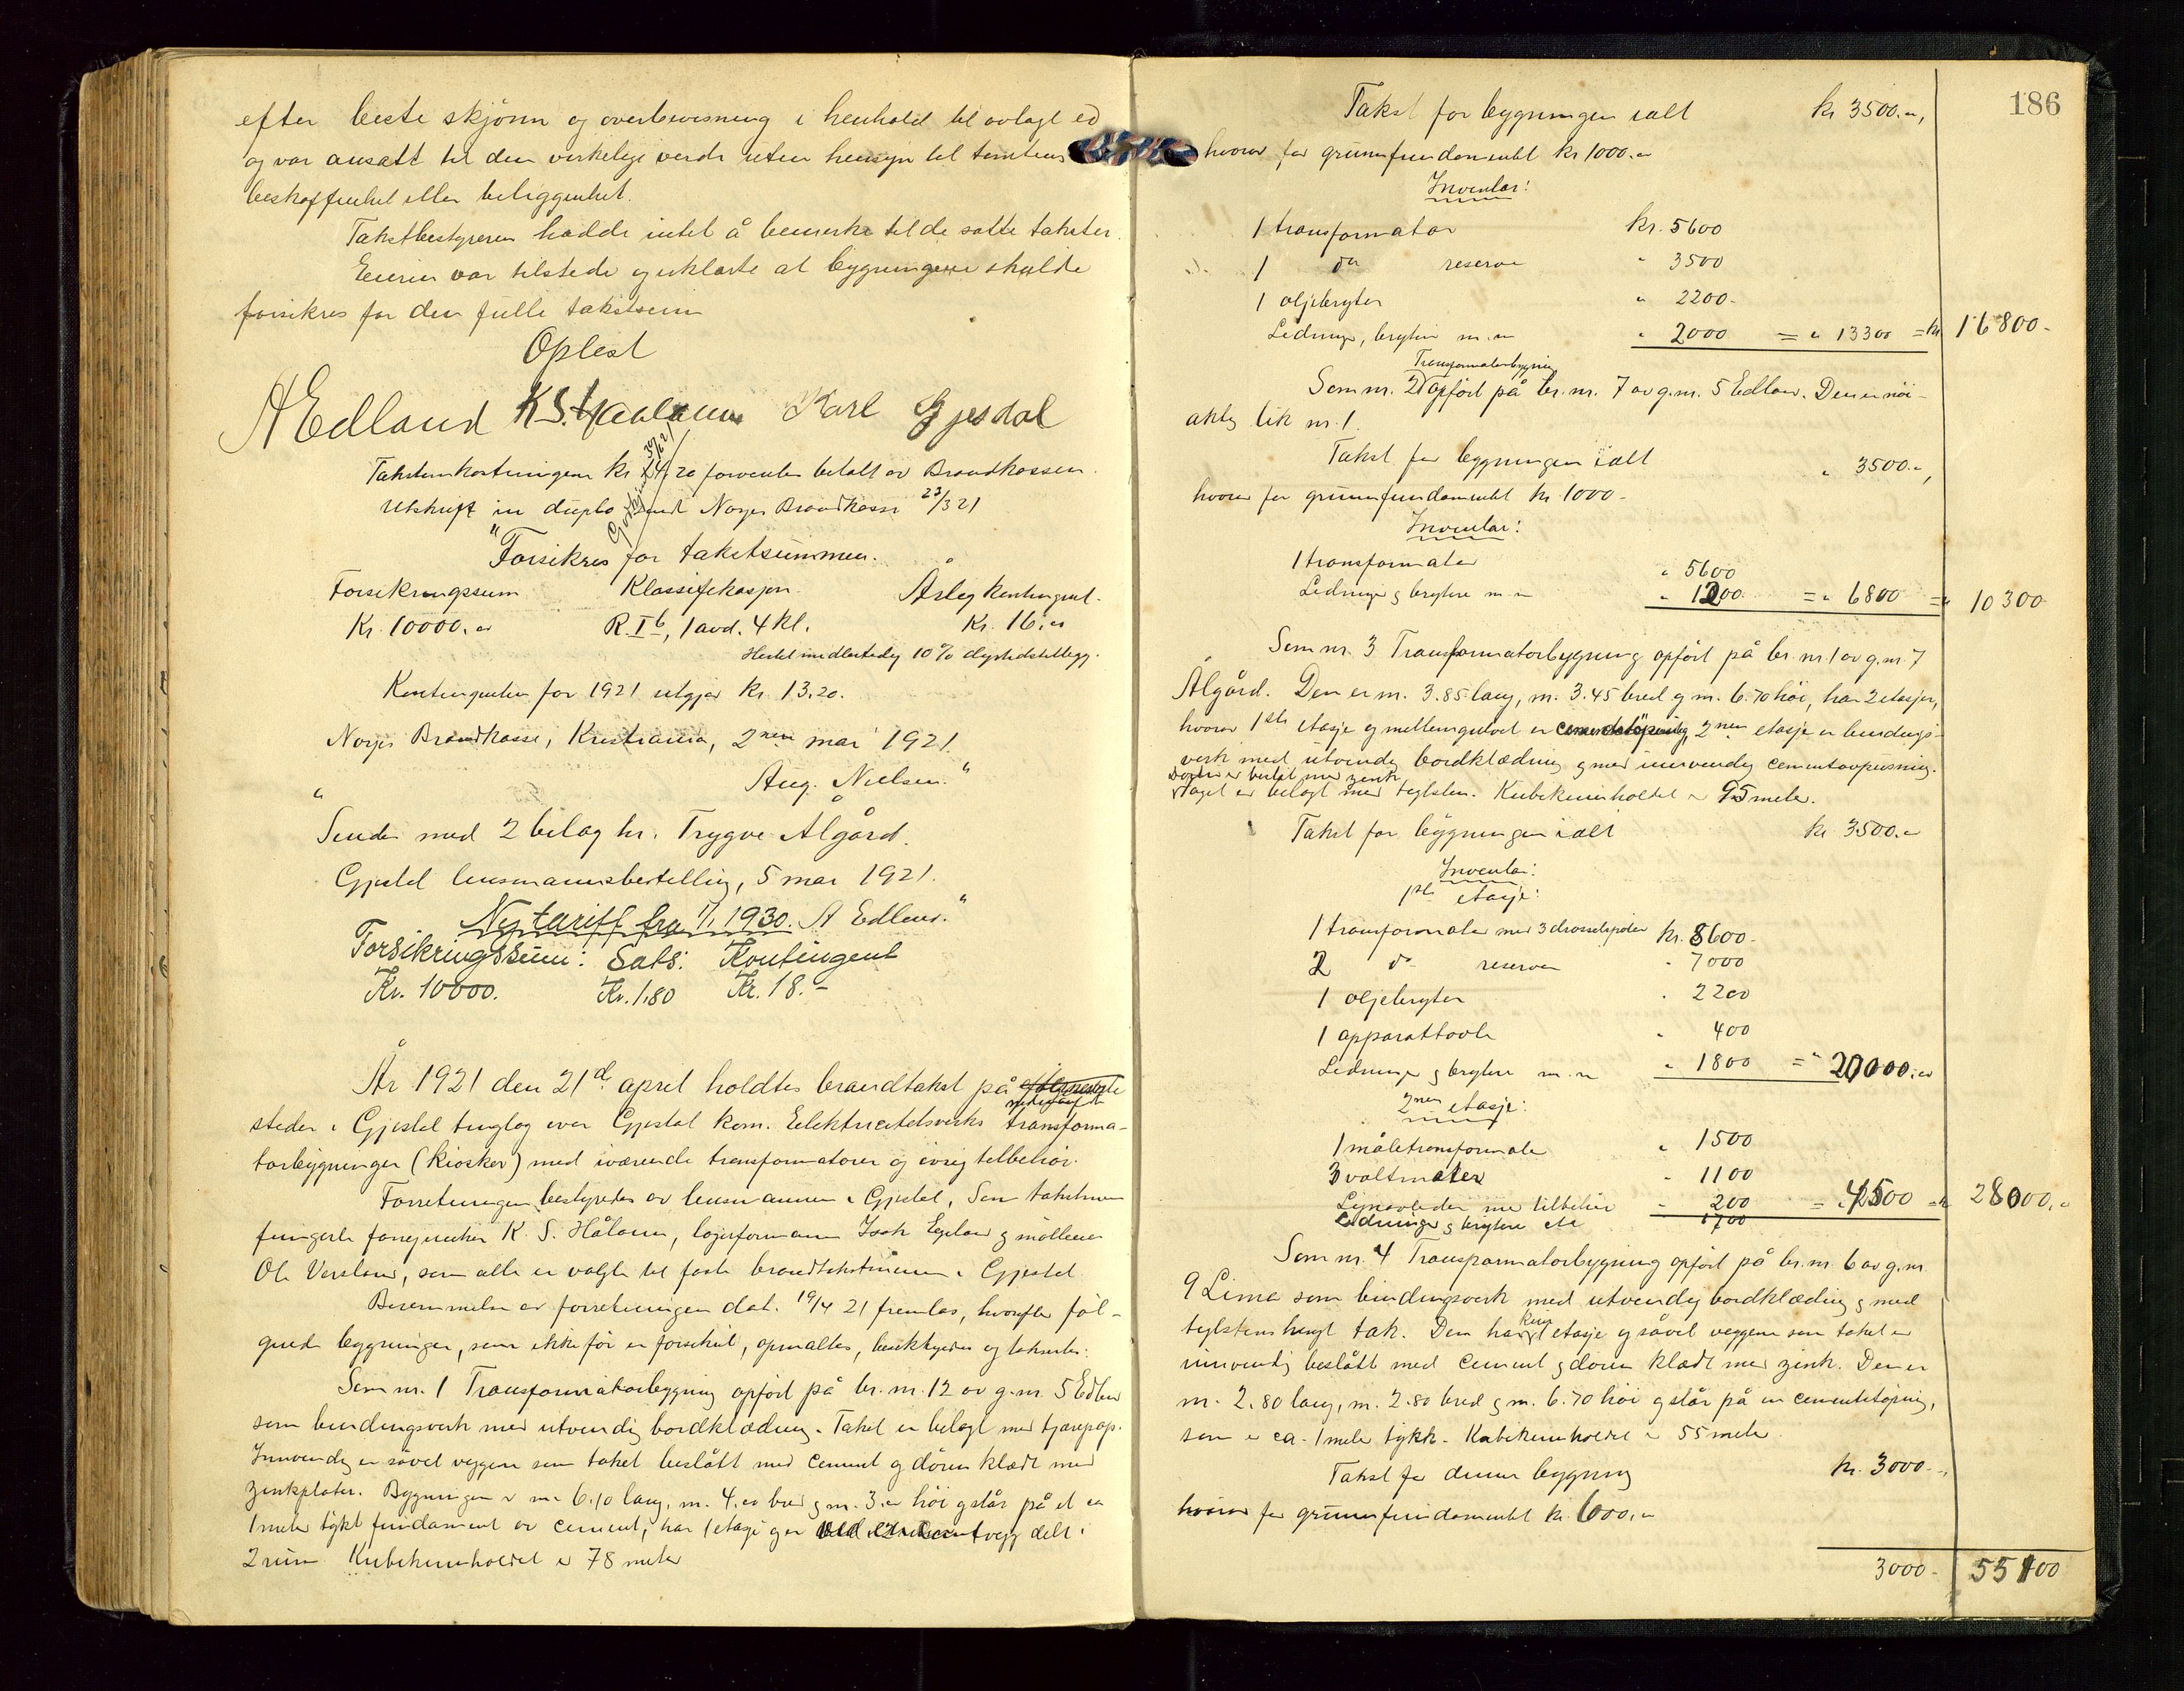 efter beste skjønn og overbevisning i henhold til avlagt ed
og var ansatt til den virkelige verdi uten hensyn til tomtens
beskaffenhet eller beliggenhet.
Takstbestyreren hadde intet å bemerke til de satte takster.
Eieren var tilstede og erklærte at bygningene skulde
forsikres for den fulle takstsum
Oplest
A Edland K.S. Haaland Karl Gjesdal
Takstomkostningene kr 24,20 forventes betalt av Brandkassen.
Utskrift in duplo sendt Norges Brandkasse 23/3 21
Godkjent 30/12 21
"Forsikres for takstsummen.
Forsikringssum Klassifikasjon Årleg kontingent.
Kr. 10000.00 R. I b, 1 avd. 4 kl. Kr. 16.00
Hertil midlertidig 10% dyrtidstillegg.
Kontingenten for 1921 utgjør kr. 13.20.
Norges Brandkasse, Kristiania, 2nen mai 1921.
Aug. Nielsen."
"Sendes med 2 bilag hr. Trygve Ålgård.
Gjestal lensmannsbestilling, 5 mai 1921.
A Edland."
Ny tariff fra 1/1 1930.
Forsikringssum: Sats: Kontingent
Kr. 10000. Kr. 1.80 Kr. 18.-
År 1921 den 21de april holdtes brandtakst på
nedennevnte
steder i Gjestal tinglag over Gjestal kom. Elektricitetsverks transforma-
torbygninger (kiosker) med iværende transformatorer og øvrig tilbehør.
Forretningen bestyredes av lensmannen i Gjestal. Som takstmenn
fungerte K. S. Håland, lagerformann Isak Egeland og møller
Ole Varland, som alle er valgte til faste brandtakstmenn i Gjestal.
Berammelse av forretningen dat. 19/4 21 fremlas, hvorefter føl-
gende bygninger, som ikke før er forsikret, opmaltes, besiktigedes og takstertes:
Som nr. 1 Transformatorbygning opført på br. nr. 12 av g.nr. 5 Edland
som bindingsverk med utvendig bordklædning. Taket er belagt med tjærepap.
Innvendig er såvel veggene som taket beslått med cement og døren klædt med
zinkplater. Bygningen er m. 6.10 lang, m. 4.00 bred og m. 3.00 høi og står på et ca
1 meter tykt fundament av cement, har 1 etasje og er ved en cementvegg delt i
2 rum Kubikinnholdet er 78 meter
186
Takst for bygningen ialt kr 3500.00,
hvorav for grunnfundamentet kr 1000.00
Inventar:
1 transformator kr. 5600
1 do reserve " 3500
1 oljebryter " 2200-
Ledninger, brytere m.m " 2000 = " 13300 = kr 16800-
Transformatorbygning
Som nr. 2 opført på br. nr. 7 av g.nr. 5 Edland. Den er nøi-
aktig lik nr. 1.
Takst for bygningen ialt " 3500.00,
hvorav for grunnfundamentet kr 1000-
Inventar:
1 transformator " 5600
Ledninger og brytere m.m " 1200 = " 6800 = " 10300
Som nr. 3 Transformatorbygning opført på br. nr 1 av g.nr. 7
Ålgård. Den er m. 3.85 lang, m. 3.45 bred og m. 6.70 høi, har 2 etasjer,
hvorav 1ste etasje og mellemgulvet er cementstøpning, 2nen etasje er bindings-
verk med utvendig bordklædning og med innvendig cementavpusning.
Døren er beslått med zink
Taget er belagt med teglsten. Kubikinnholdet er 95 meter.
Takst for bygningen ialt kr 3500.00
Inventar:
1ste etasje:
1 transformator med 3 drosselspoler kr. 8600-
2 do reserve " 7000
1 oljebryter " 2200
1 apparattavle " 400
Ledninger og brytere m.m " 1800 = " 20000.00
2nen etasje:
1 måletransformator " 1500
3 voltmeter " 1100
Lynavleder med tilbehør " 200 = " 4500 = kr 28000.00
Ledninger og brytere etc 1700
Som nr. 4 Transformatorbygning opført på br. nr. 6 av g.nr.
9 Lima som bindingsverk med utvendig bordklædning og med
teglstenshengt tak. Den har kun 1 etasje og såvel veggene som taket er
innvendig beslått med cement og døren klædt med zink. Den er
m. 2.80 lang, m. 2.80 bred og m. 6.70 høi og står på en cementstøpning,
som er ca. 1 meter tykk. Kubikinnholdet er 55 meter.
Takst for denne bygning kr. 3000.-,
hvorav for grunnfundamentet kr. 600.00
3000- 55100